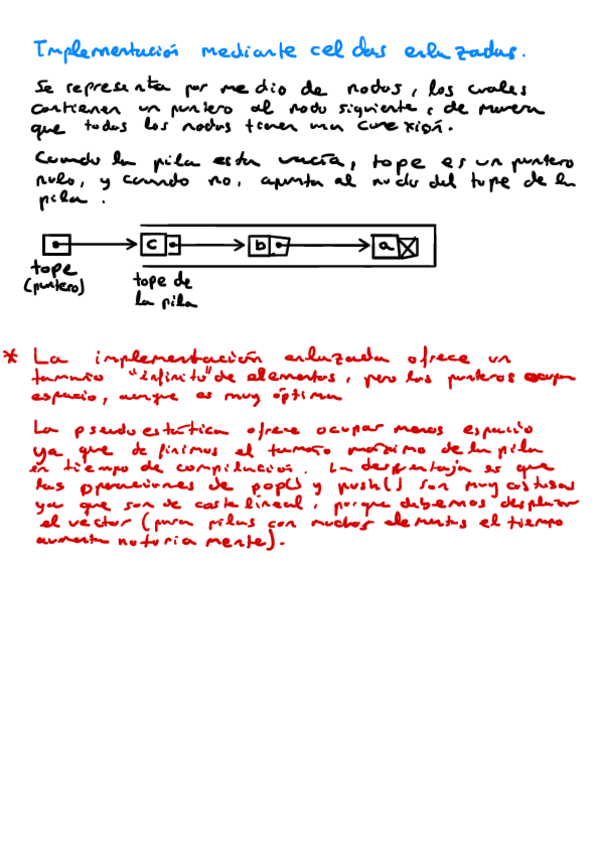 Implementación mediante celdas enlazadas.
Se representa por medio de nodos, los cuales
contienen un puntero al nodo siguiente, de manera
que todos los nodos tienen una conexión.
Cuando la pila está vacía, tope es un puntero
nulo, y cuando no, apunta al nodo del tope de la
pila.
c b a
tope
(puntero)
tope de
la pila
* La implementación enlazada ofrece un
tamaño "infinito" de elementos, pero los punteros ocupan
espacio, aunque es muy óptima
La pseudoestática ofrece ocupar menos espacio
ya que definimos el tamaño máximo de la pila
en tiempo de compilación. La desventaja es que
las operaciones de pop() y push() son muy costosas
ya que son de coste lineal, porque debemos desplazar
el vector (para pilas con muchos elementos el tiempo
aumenta notoriamente).